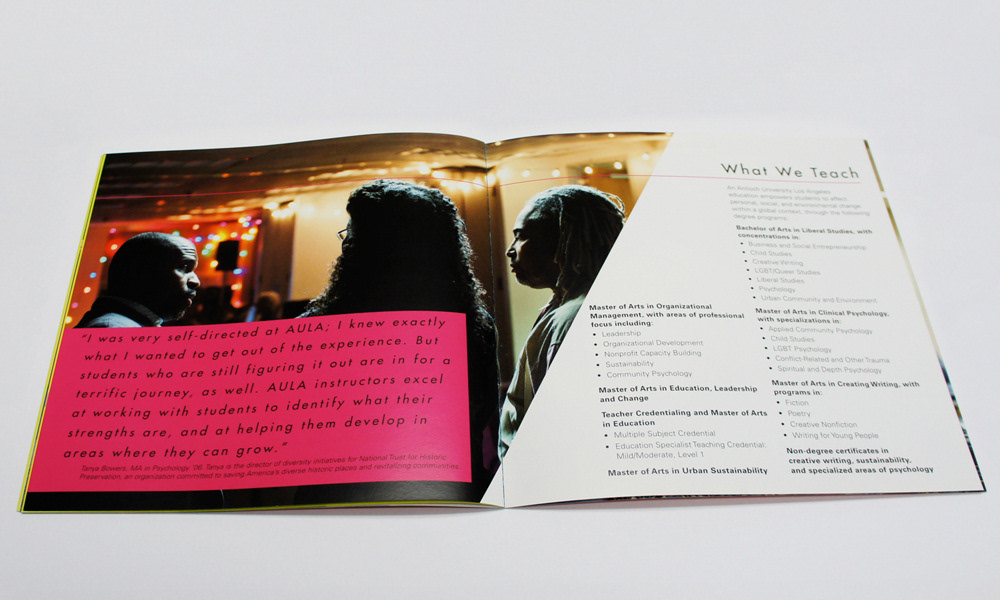 "I was very self-directed at AULA; I knew exactly
what I wanted to get out of the experience. But
students who are still figuring it out are in for a
terrific journey, as well. AULA instructors excel
at working with students to identify what their
strengths are, and at helping them develop in
areas where they can grow."
Tanya Bowers, MA in Psychology '06. Tanya is the director of diversity initiatives for National Trust for Historic
Preservation, an organization committed to saving America's diverse historic places and revitalizing communities.
What We Teach
An Antioch University Los Angeles
education empowers students to effect
personal, social, and environmental change
within a global context, through the following
degree programs:
Bachelor of Arts in Liberal Studies, with
concentrations in:
• Business and Social Entrepreneurship
• Child Studies
• Creative Writing
• LGBT/Queer Studies
• Liberal Studies
• Psychology
• Urban Community and Environment
Master of Arts in Clinical Psychology,
with specializations in:
• Applied Community Psychology
• Child Studies
• LGBT Psychology
• Conflict-Related and Other Trauma
• Spiritual and Depth Psychology
Master of Arts in Creating Writing, with
programs in:
• Fiction
• Poetry
• Creative Nonfiction
• Writing for Young People
Non-degree certificates in
creative writing, sustainability,
and specialized areas of psychology
Master of Arts in Organizational
Management, with areas of professional
focus including:
• Leadership
• Organizational Development
• Nonprofit Capacity Building
• Sustainability
• Community Psychology
Master of Arts in Education, Leadership
and Change
Teacher Credentialing and Master of Arts
in Education
• Multiple Subject Credential
• Education Specialist Teaching Credential:
Mild/Moderate, Level 1
Master of Arts in Urban Sustainability